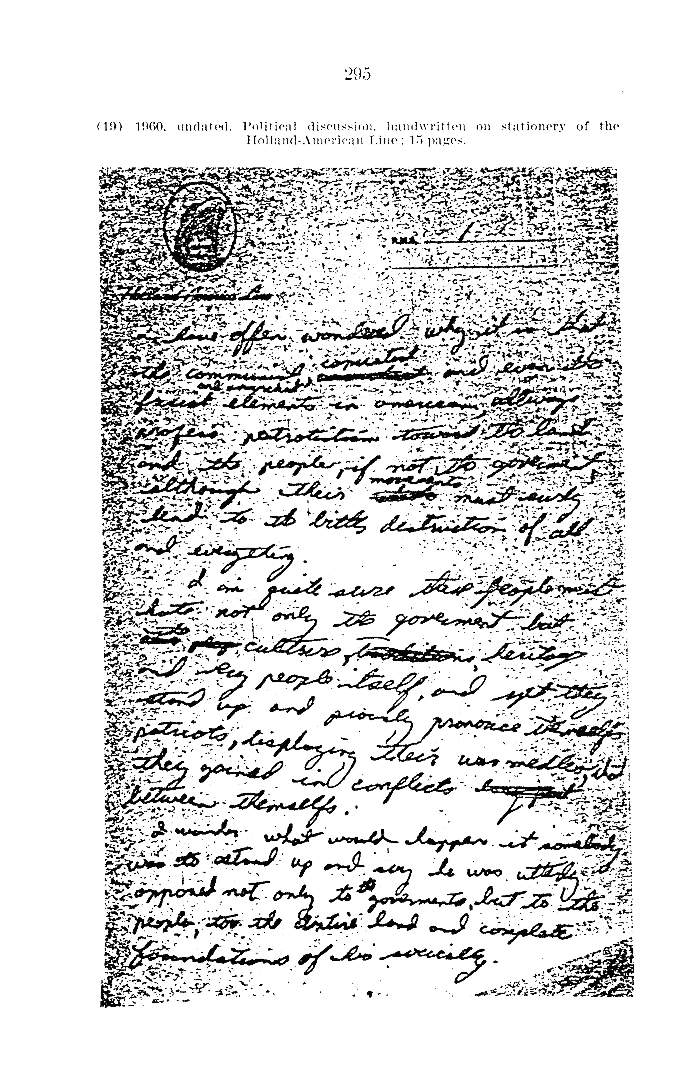 295
(19) 1960, undated. Political discussion, handwritten on stationery of the
Holland-American Line; 15 pages.
R.M.S. 1
Holland America Line
I have often wondered why it is that
the communist, consistent and even the
fascist elements in american, allways
profess patrotistism toward the land
and the people, if not the goverment,
although their movements must surly
lead to the bitter destruction of all
and everything.
I am quite sure these people must
hate not only the goverment but
the culture, traditions, heritage
and very people itself, and yet they
stand up and piously pronouce themselfs
patriots, displaying their war medles, that
they gained in conflicts
between themselfs.
I wonder what would happen it somebody
was to stand up and say he was utterly
opposed not only to the goverments, but to the
people, too the entire land and complete
foundations of his socically.